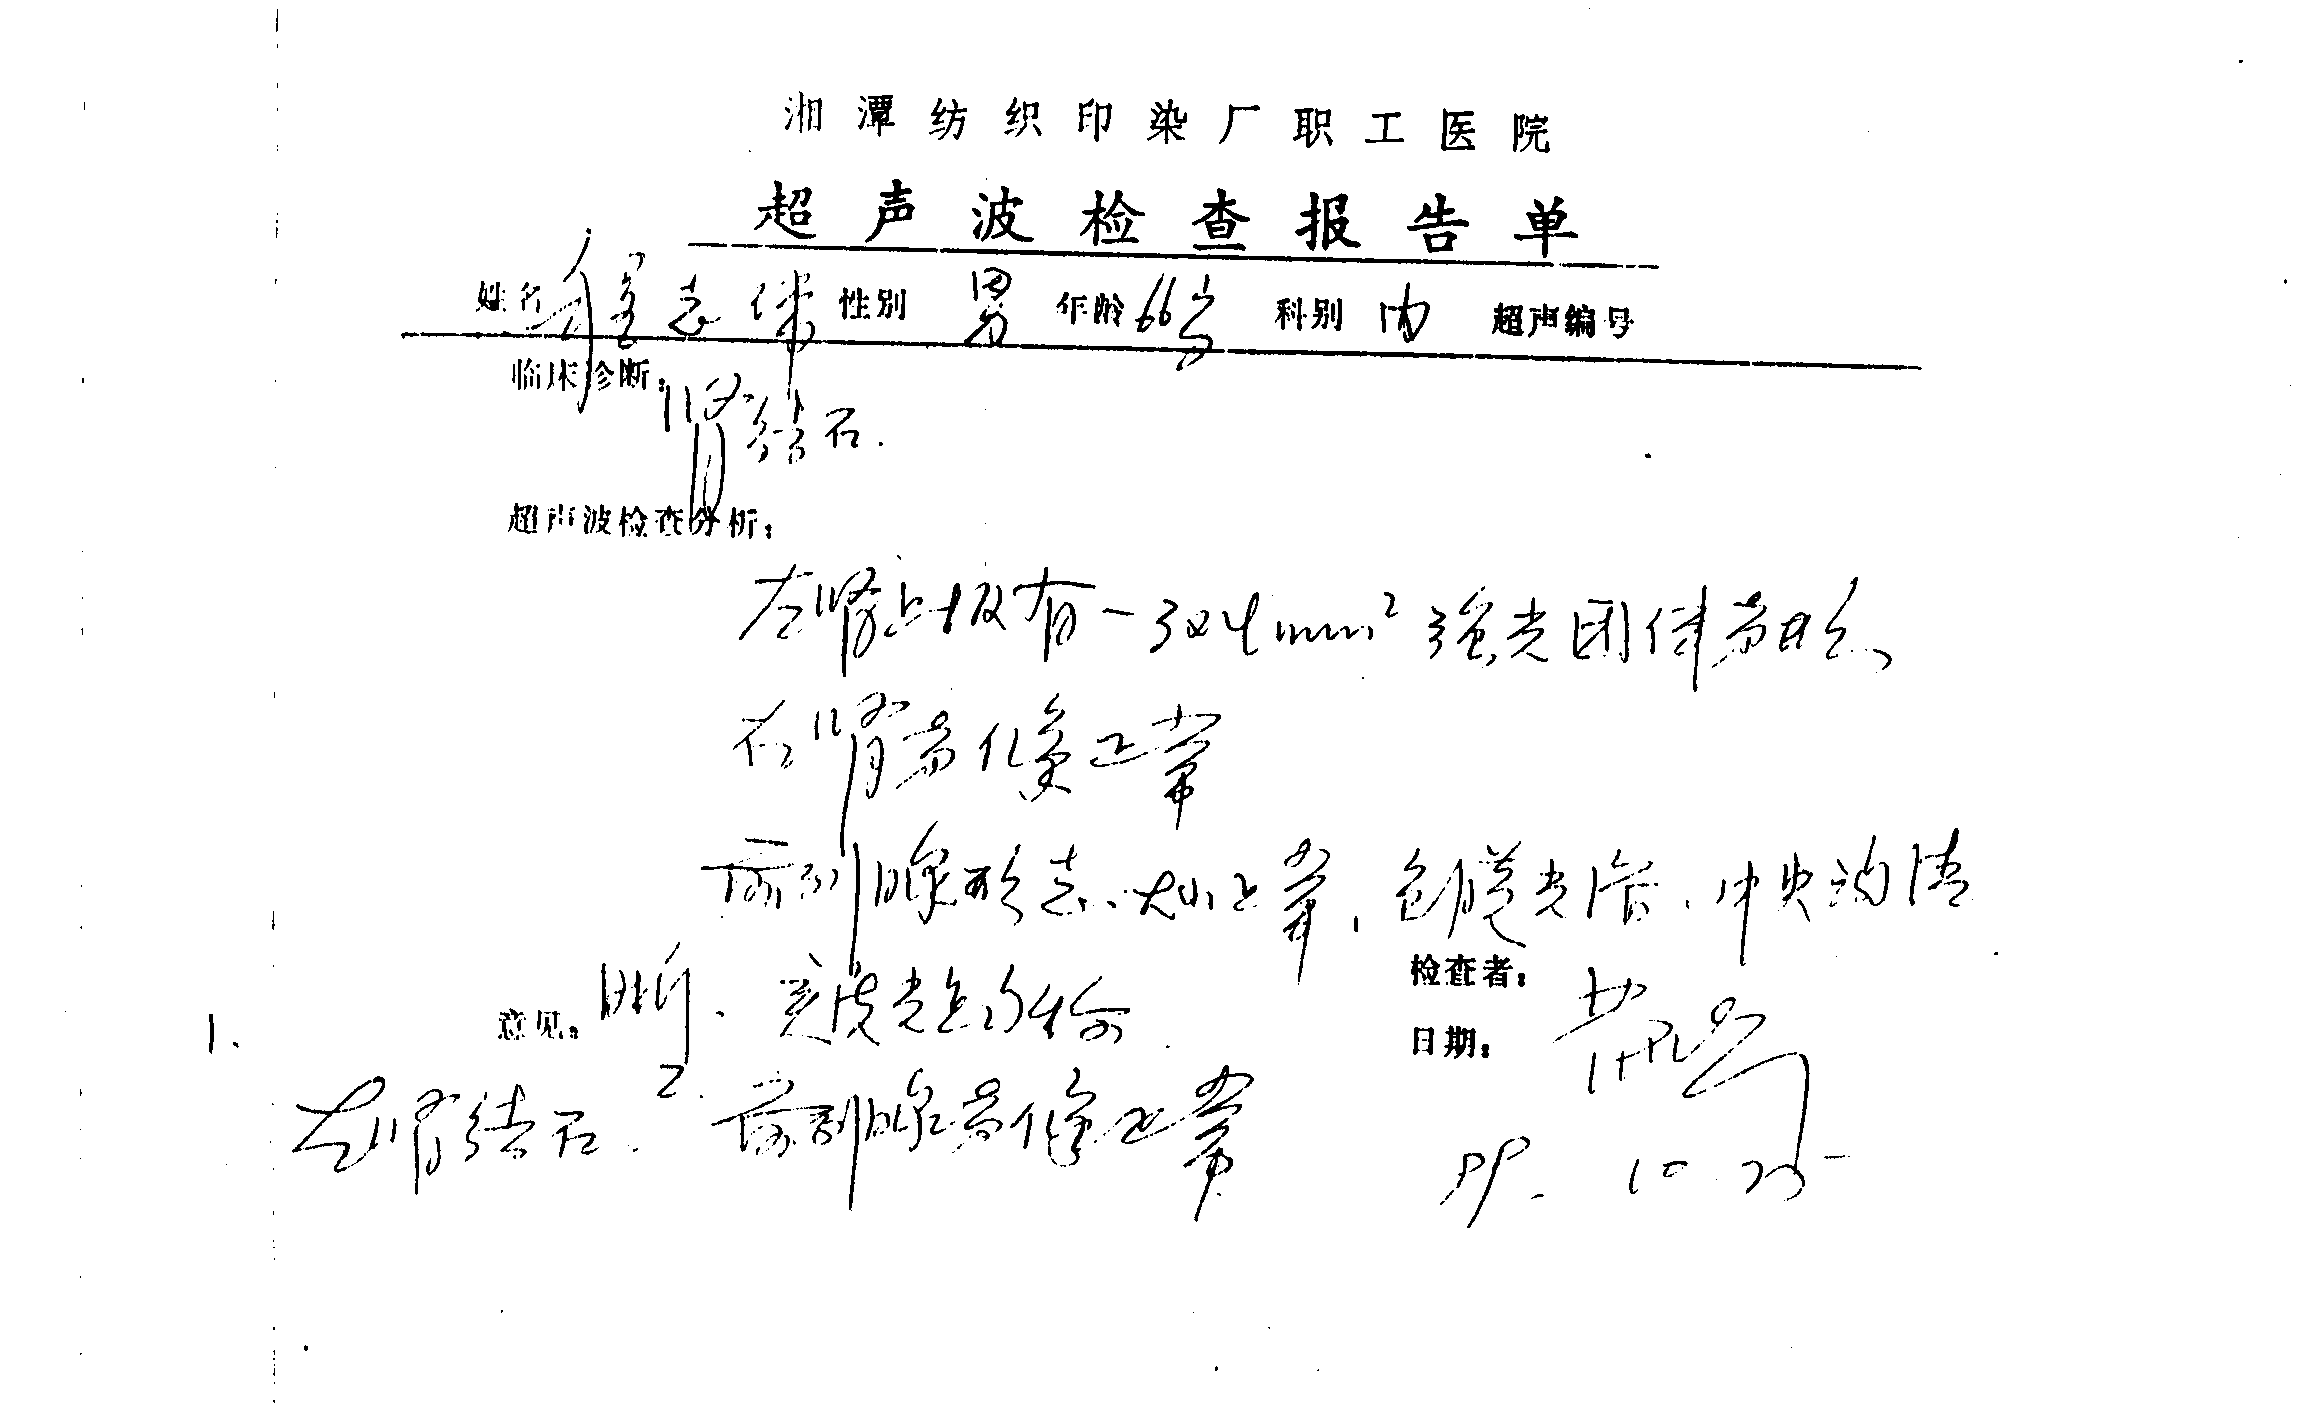 湘潭纺织印染厂职工医院
超声波检查报告单
姓名 志儒 性别 男 年龄 66岁 科别 内 超声编号
临床诊断：
肾结石.
超声波检查分析：
左肾上极有一3×4mm² 强光团伴声影
右肾声像正常
前列腺形态、大小正常，包膜光滑、中央沟清
晰. 实质光点均称
检查者：
意见：
日期：
1. 左肾结石. 2. 前列腺声像正常
99. 10. 25